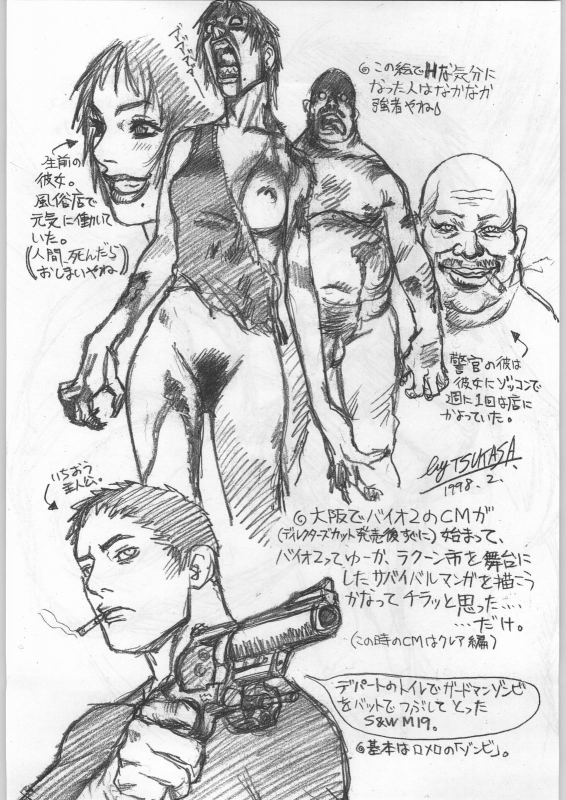 ヴァァァァ
◎この絵でHな気分に
なった人はなかなか
強者やね♪
生前の
彼女。
風俗店で
元気に働いて
いた。
(人間、死んだら
おしまいやね)
警官の彼は
彼女にゾッコンで
週に1回は店に
かよっていた。
by TSUKASA.
1998.2.
いちおう
主人公。
◎大阪でバイオ2のCMが
(ディレクターズカット発売後すぐに)始まって、
バイオ2ってゆーか、ラクーン市を舞台に
したサバイバルマンガを描こう
かなってチラッと思った……
……だけ。
(この時のCMはクレア編)
デパートのトイレでガードマンゾンビ
をバットでつぶしてとった
S&W M19。
◎基本はロメロの「ゾンビ」。